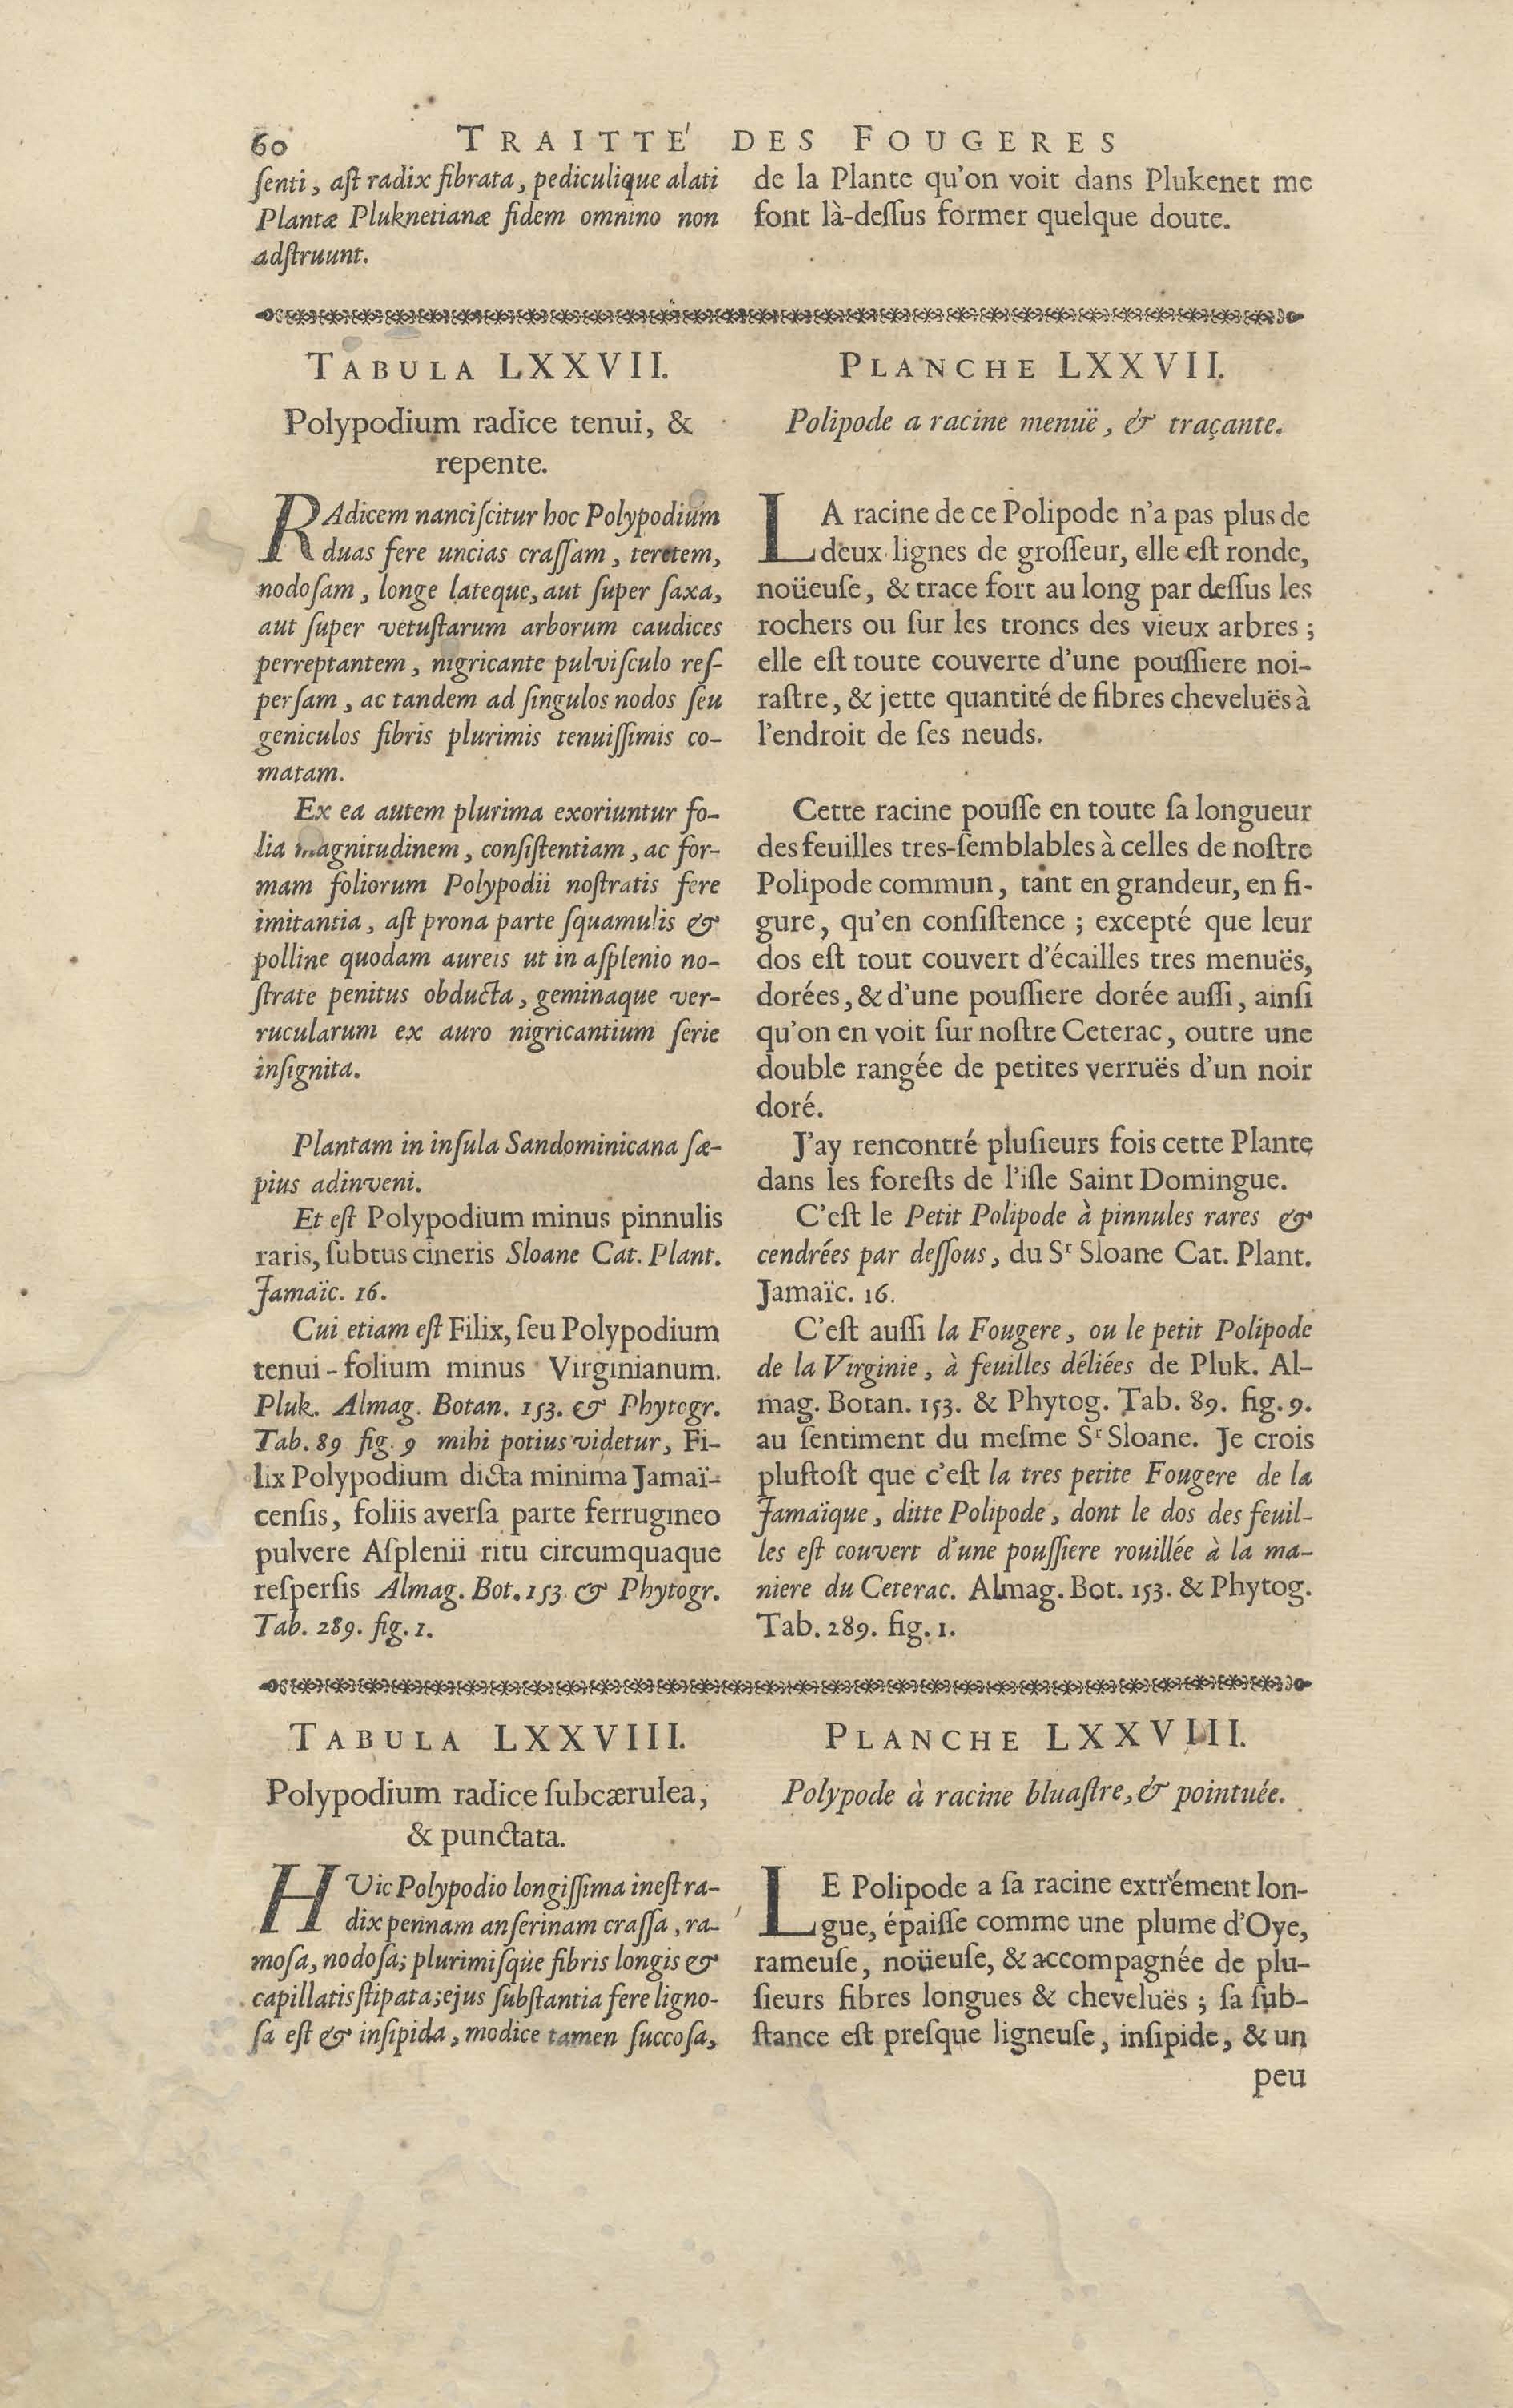 60 TRAITTE' DES FOUGERES
ſenti, aſt radix fibrata, pediculique alati
Plantæ Pluknetianæ fidem omnino non
adſtruunt.
de la Plante qu'on voit dans Plukenet me
font là-deſſus former quelque doute.
TABULA LXXVII.
Polypodium radice tenui, &
repente.
RAdicem nanciſcitur hoc Polypodium
duas fere uncias craſſam, teretem,
nodoſam, longe lateque, aut ſuper ſaxa,
aut ſuper vetuſtarum arborum caudices
perreptantem, nigricante pulviſculo reſ-
perſam, ac tandem ad ſingulos nodos ſeu
geniculos fibris plurimis tenuiſſimis co-
matam.
Ex ea autem plurima exoriuntur fo-
lia magnitudinem, conſiſtentiam, ac for-
mam foliorum Polypodii noſtratis fere
imitantia, aſt prona parte ſquamulis &
polline quodam aureis ut in aſplenio no-
ſtrate penitus obducta, geminaque ver-
rucularum ex auro nigricantium ſerie
inſignita.
Plantam in inſula Sandominicana ſæ-
pius adinveni.
Et eſt Polypodium minus pinnulis
raris, ſubtus cineris Sloane Cat. Plant.
Jamaïc. 16.
Cui etiam eſt Filix, ſeu Polypodium
tenui-folium minus Virginianum.
Pluk. Almag. Botan. 153. & Phytogr.
Tab. 89 fig. 9 mihi potius videtur, Fi-
lix Polypodium dicta minima Jamaï-
cenſis, foliis averſa parte ferrugineo
pulvere Aſplenii ritu circumquaque
reſperſis Almag. Bot. 153. & Phytogr.
Tab. 289. fig. 1.
PLANCHE LXXVII.
Polipode a racine menuë, & traçante.
LA racine de ce Polipode n'a pas plus de
deux lignes de groſſeur, elle eſt ronde,
noüeuſe, & trace fort au long par deſſus les
rochers ou ſur les troncs des vieux arbres ;
elle eſt toute couverte d'une pouſſiere noi-
raſtre, & jette quantité de fibres cheveluës à
l'endroit de ſes neuds.
Cette racine pouſſe en toute ſa longueur
des feuilles tres-ſemblables à celles de noſtre
Polipode commun, tant en grandeur, en fi-
gure, qu'en conſiſtence ; excepté que leur
dos eſt tout couvert d'écailles tres menuës,
dorées, & d'une pouſſiere dorée auſſi, ainſi
qu'on en voit ſur noſtre Ceterac, outre une
double rangée de petites verruës d'un noir
doré.
J'ay rencontré pluſieurs fois cette Plante
dans les foreſts de l'iſle Saint Domingue.
C'eſt le Petit Polipode à pinnules rares &
cendrées par deſſous, du Sr Sloane Cat. Plant.
Jamaïc. 16.
C'eſt auſſi la Fougere, ou le petit Polipode
de la Virginie, à feuilles déliées de Pluk. Al-
mag. Botan. 153. & Phytog. Tab. 89. fig. 9.
au ſentiment du meſme Sr Sloane. Je crois
pluſtoſt que c'eſt la tres petite Fougere de la
Jamaïque, ditte Polipode, dont le dos des feuil-
les eſt couvert d'une pouſſiere rouillée à la ma-
niere du Ceterac. Almag. Bot. 153. & Phytog.
Tab. 289. fig. 1.
TABULA LXXVIII.
Polypodium radice ſubcærulea,
& punctata.
HUic Polypodio longiſſima ineſt ra-
dix pennam anſerinam craſſa, ra-
moſa, nodoſa; plurimiſque fibris longis &
capillatis ſtipata; ejus ſubſtantia fere ligno-
ſa eſt & inſipida, modice tamen ſuccoſa,
PLANCHE LXXVIII.
Polypode à racine bluaſtre, & pointuée.
LE Polipode a ſa racine extrément lon-
gue, épaiſſe comme une plume d'Oye,
rameuſe, noüeuſe, & accompagnée de plu-
ſieurs fibres longues & cheveluës ; ſa ſub-
ſtance eſt preſque ligneuſe, inſipide, & un
peu